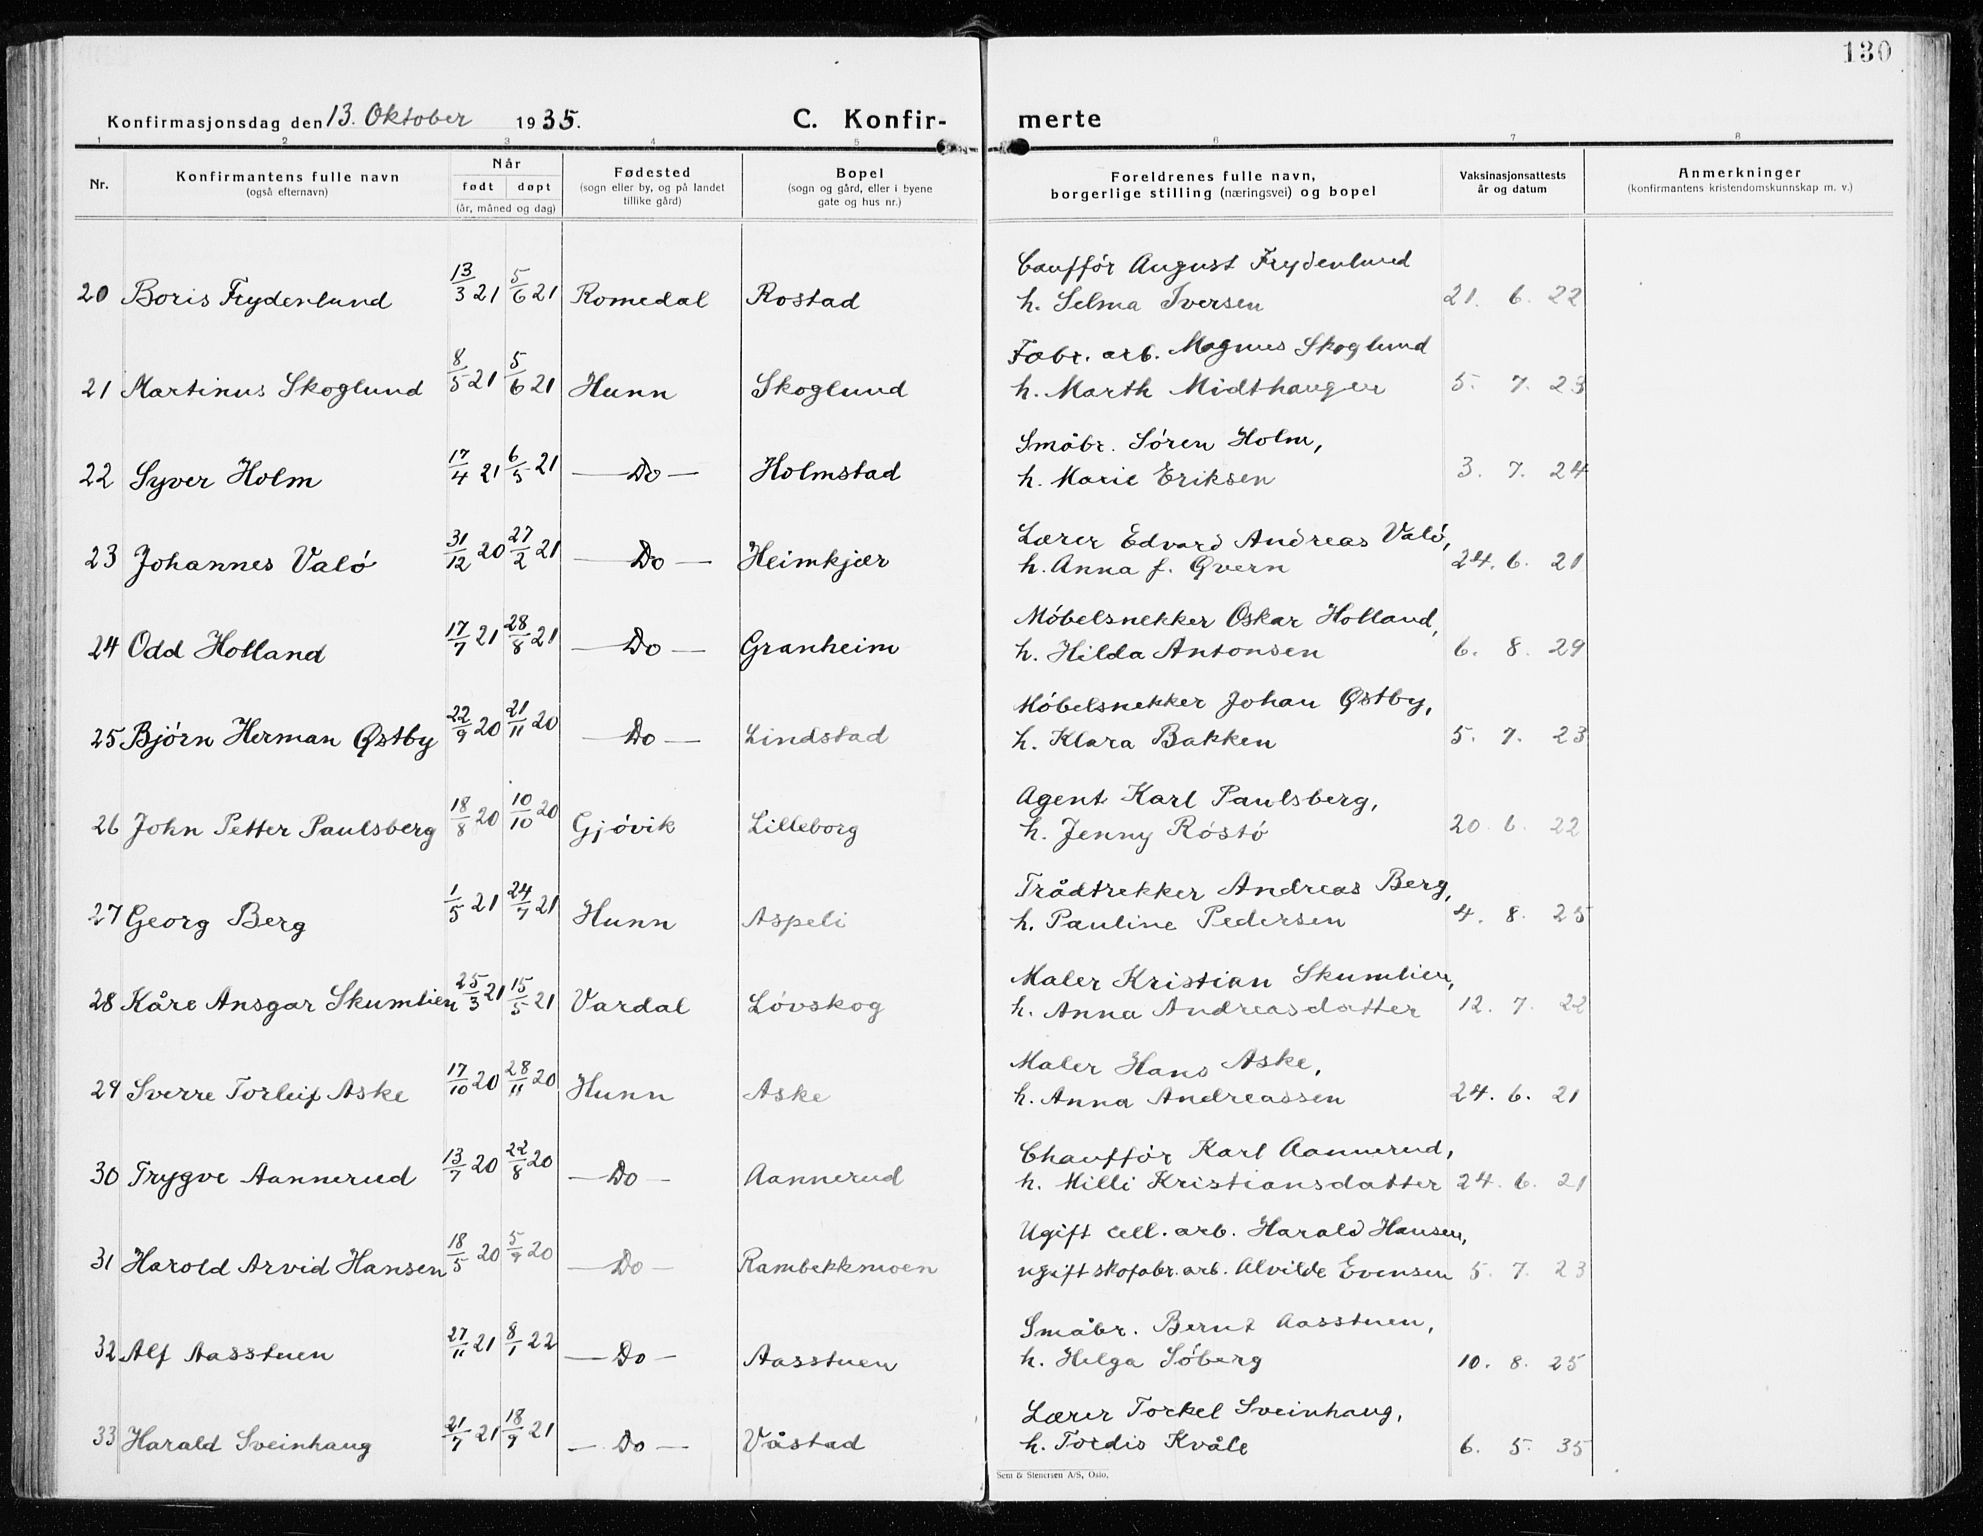 130
Konfirmasjonsdag den 13. Oktober 1935. C. Konfir- merte
1 2 3 4 5 6 7 8
Nr. Konfirmantens fulle navn (også efternavn) Når født døpt (år, måned og dag) Fødested (sogn eller by, og på landet tillike gård) Bopel (sogn og gård, eller i byene gate og hus nr.) Foreldrenes fulle navn, borgerlige stilling (næringsvei) og bopel Vaksinasjonsattests år og datum Anmerkninger (konfirmantens kristendomskunnskap m. v.)
Cauffór August Frydenlund
20 Boris Frydenlund 13/3 21 5/6 21 Romedal Rostad h. Selma Iversen 21. 6. 22
Fabr. arb. Magnus Skoglund
21 Martinus Skoglund 8/5 21 5/6 21 Hunn Skoglund h. Marth Midthaugen 5. 7. 23
Småbr. Sóren Holm,
22 Syver Holm 17/4 21 6/5 21 — Do — Holmstad h. Marie Eriksen 3. 7. 24
Lærer Edvard Andreas Való,
23 Johannes Való 31/12 20 27/2 21 — Do — Heimkjær h. Anna f. Qvern 24. 6. 21
Móbelsnekker Oskar Holland,
24 Odd Holland 17/7 21 28/8 21 — Do — Granheim h. Hilda Antonsen 6. 8. 29
Móbelsnekker Johan Østby,
25 Bjórn Herman Østby 22/9 20 21/11 20 — Do — Lindstad h. Klara Bakken 5. 7. 23
Agent Karl Paulsberg,
26 John Petter Paulsberg 18/8 20 10/10 20 Gjóvik Lilleborg h. Jenny Róstó 20. 6. 22
Trådtrekker Andreas Berg,
27 Georg Berg 1/5 21 24/7 21 Hunn Aspeli h. Pauline Pedersen 4. 8. 25
Maler Kristian Skumlien,
28 Kåre Ansgar Skumlien 25/3 21 15/5 21 Vardal Lóvskog h. Anna Andreasdatter 12. 7. 22
Maler Hans Aske,
29 Sverre Torleif Aske 17/10 20 28/11 20 Hunn Aske h. Anna Andreassen 24. 6. 21
Chauffór Karl Aannerud,
30 Trygve Aannerud 13/7 20 22/8 20 — Do — Aannerud h. Milli Kristiansdatter 24. 6. 21
Ugift cell. arb. Harald Hansen,
31 Harold Arvid Hansen 18/5 20 5/9 20 — Do — Rambekkmoen ugift skofabr. arb. Alvilde Evensen 5. 7. 23
Småbr. Bernt Aasstuen,
32 Alf Aasstuen 27/11 21 8/1 22 — Do — Aasstuen h. Helga Sóberg 10. 8. 25
Lærer Torkel Sveinhaug,
33 Harald Sveinhaug 21/7 21 18/9 21 — Do — Våstad h. Tordis Kvåle 6. 5. 35
Sem & Stenersen A/S, Oslo.